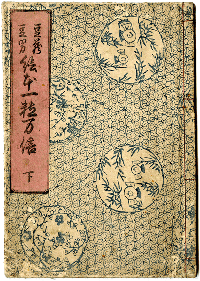 豆蔵
豆男
絵本一粒万倍
下